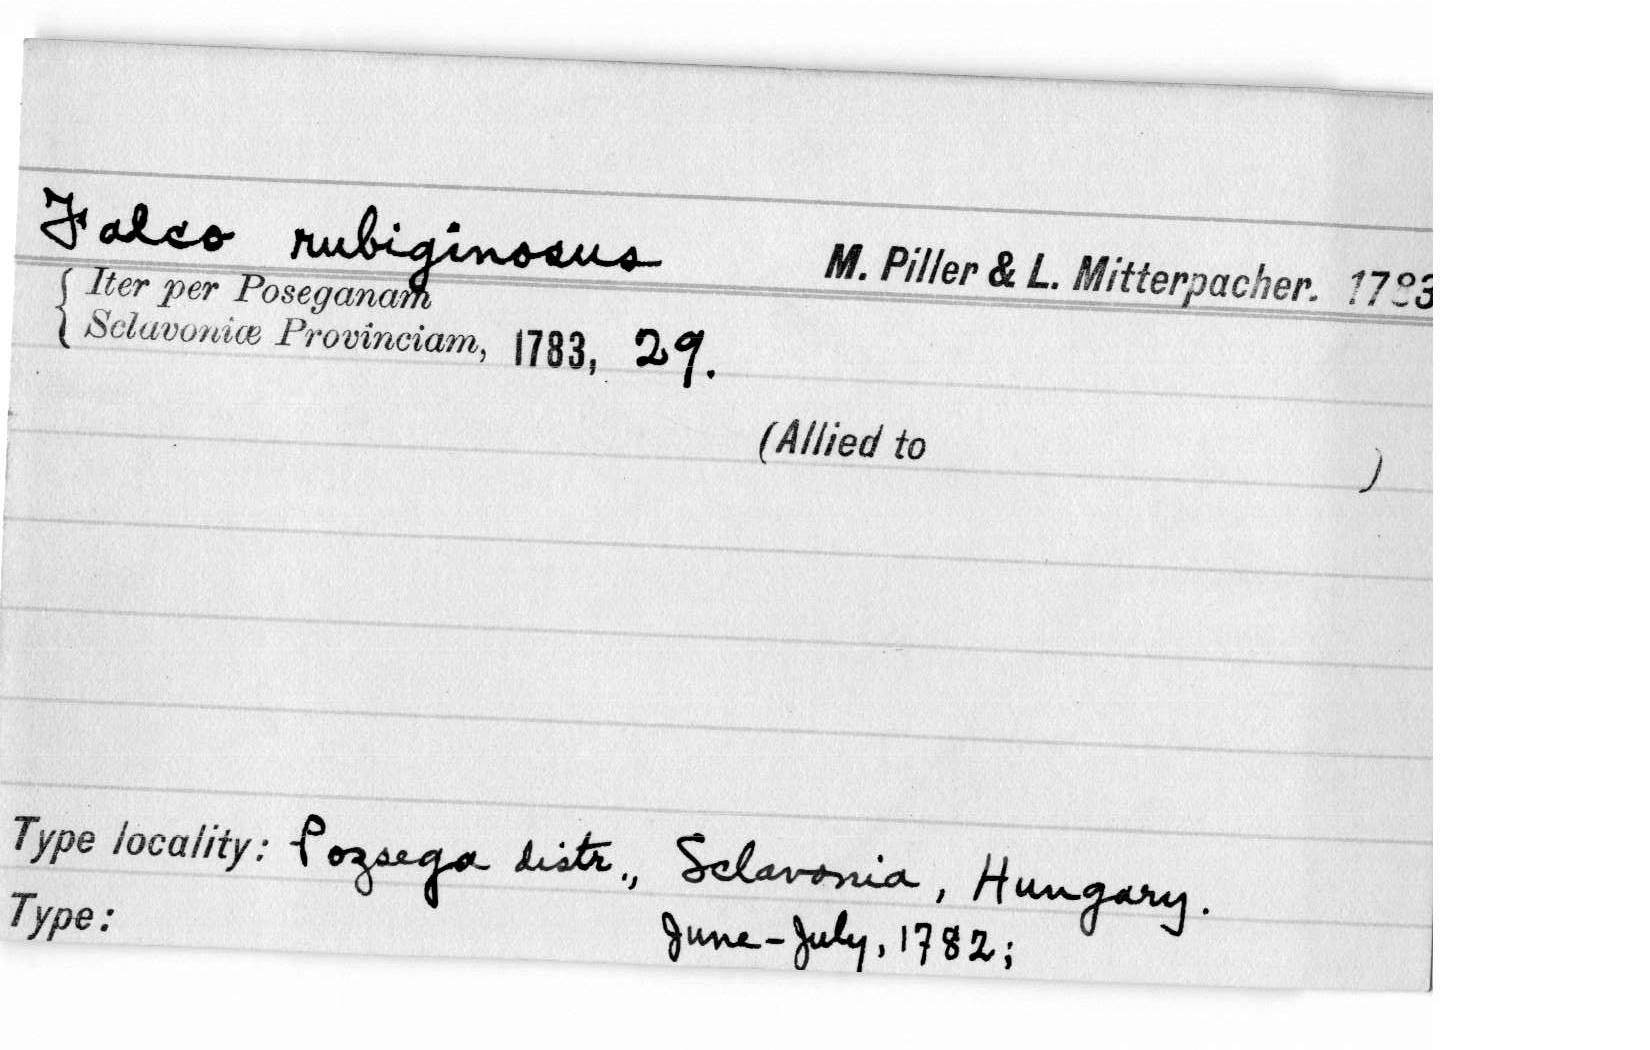 Falco rubiginosus M. Piller & L. Mitterpacher. 1783
Iter per Poseganam
Sclavoniæ Provinciam, 1783, 29.
(Allied to )
Type locality: Pozsega distr., Sclavonia, Hungary.
Type: June-July, 1782;